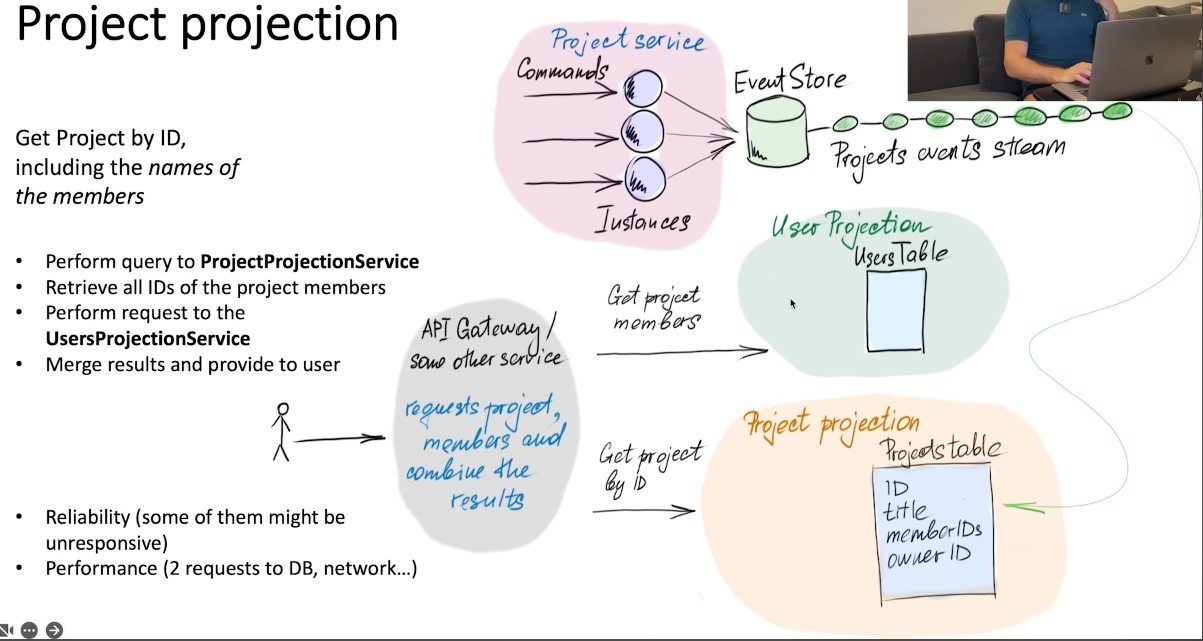 Project projection
Get Project by ID,
including the names of
the members
• Perform query to ProjectProjectionService
• Retrieve all IDs of the project members
• Perform request to the
UsersProjectionService
• Merge results and provide to user
• Reliability (some of them might be
unresponsive)
• Performance (2 requests to DB, network...)
Project service
Commands
Instances
Event Store
Projects events stream
User Projection
Users Table
API Gateway/
some other service
requests project,
members and
combine the
results
Get project
members
Get project
by ID
Project projection
Projects table
ID
title
memberIDs
owner ID